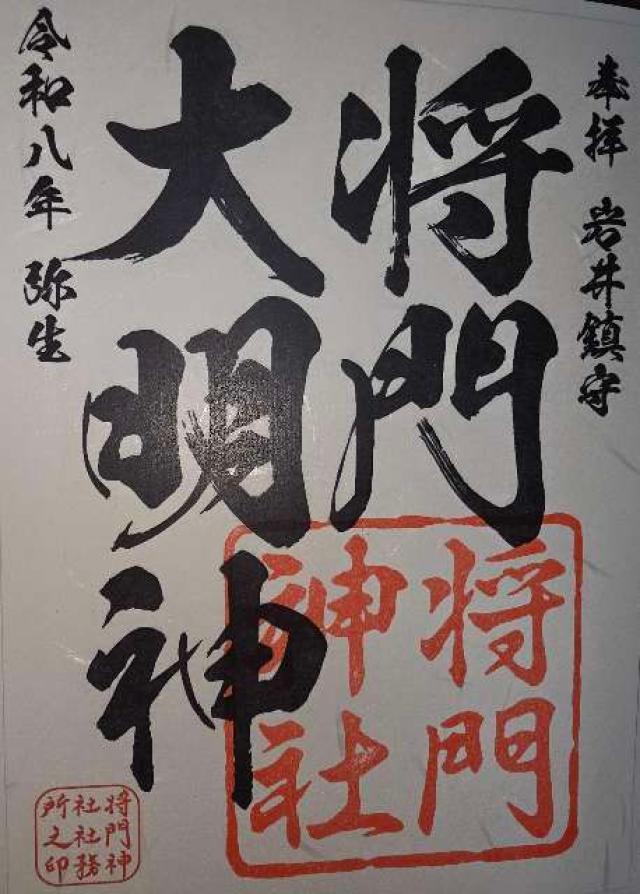 奉拝 岩井鎮守
将門
大明神
令和八年 弥生
将門
神社
将門神
社社務
所之印